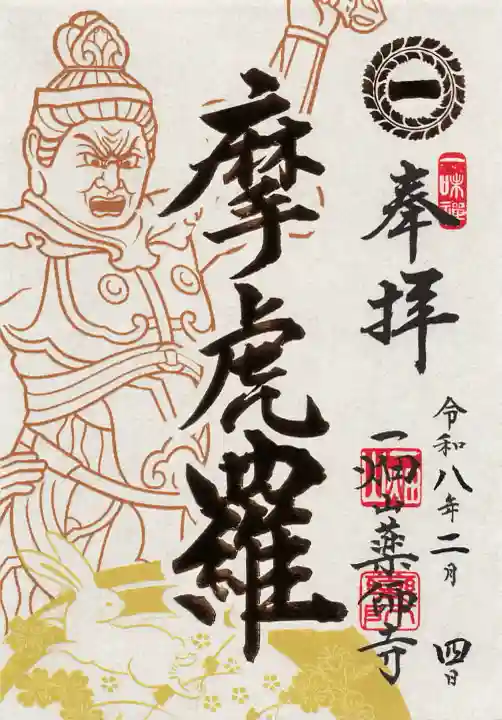 一
一味禅
奉拝
令和八年二月四日
摩虎羅
一畑山薬師寺